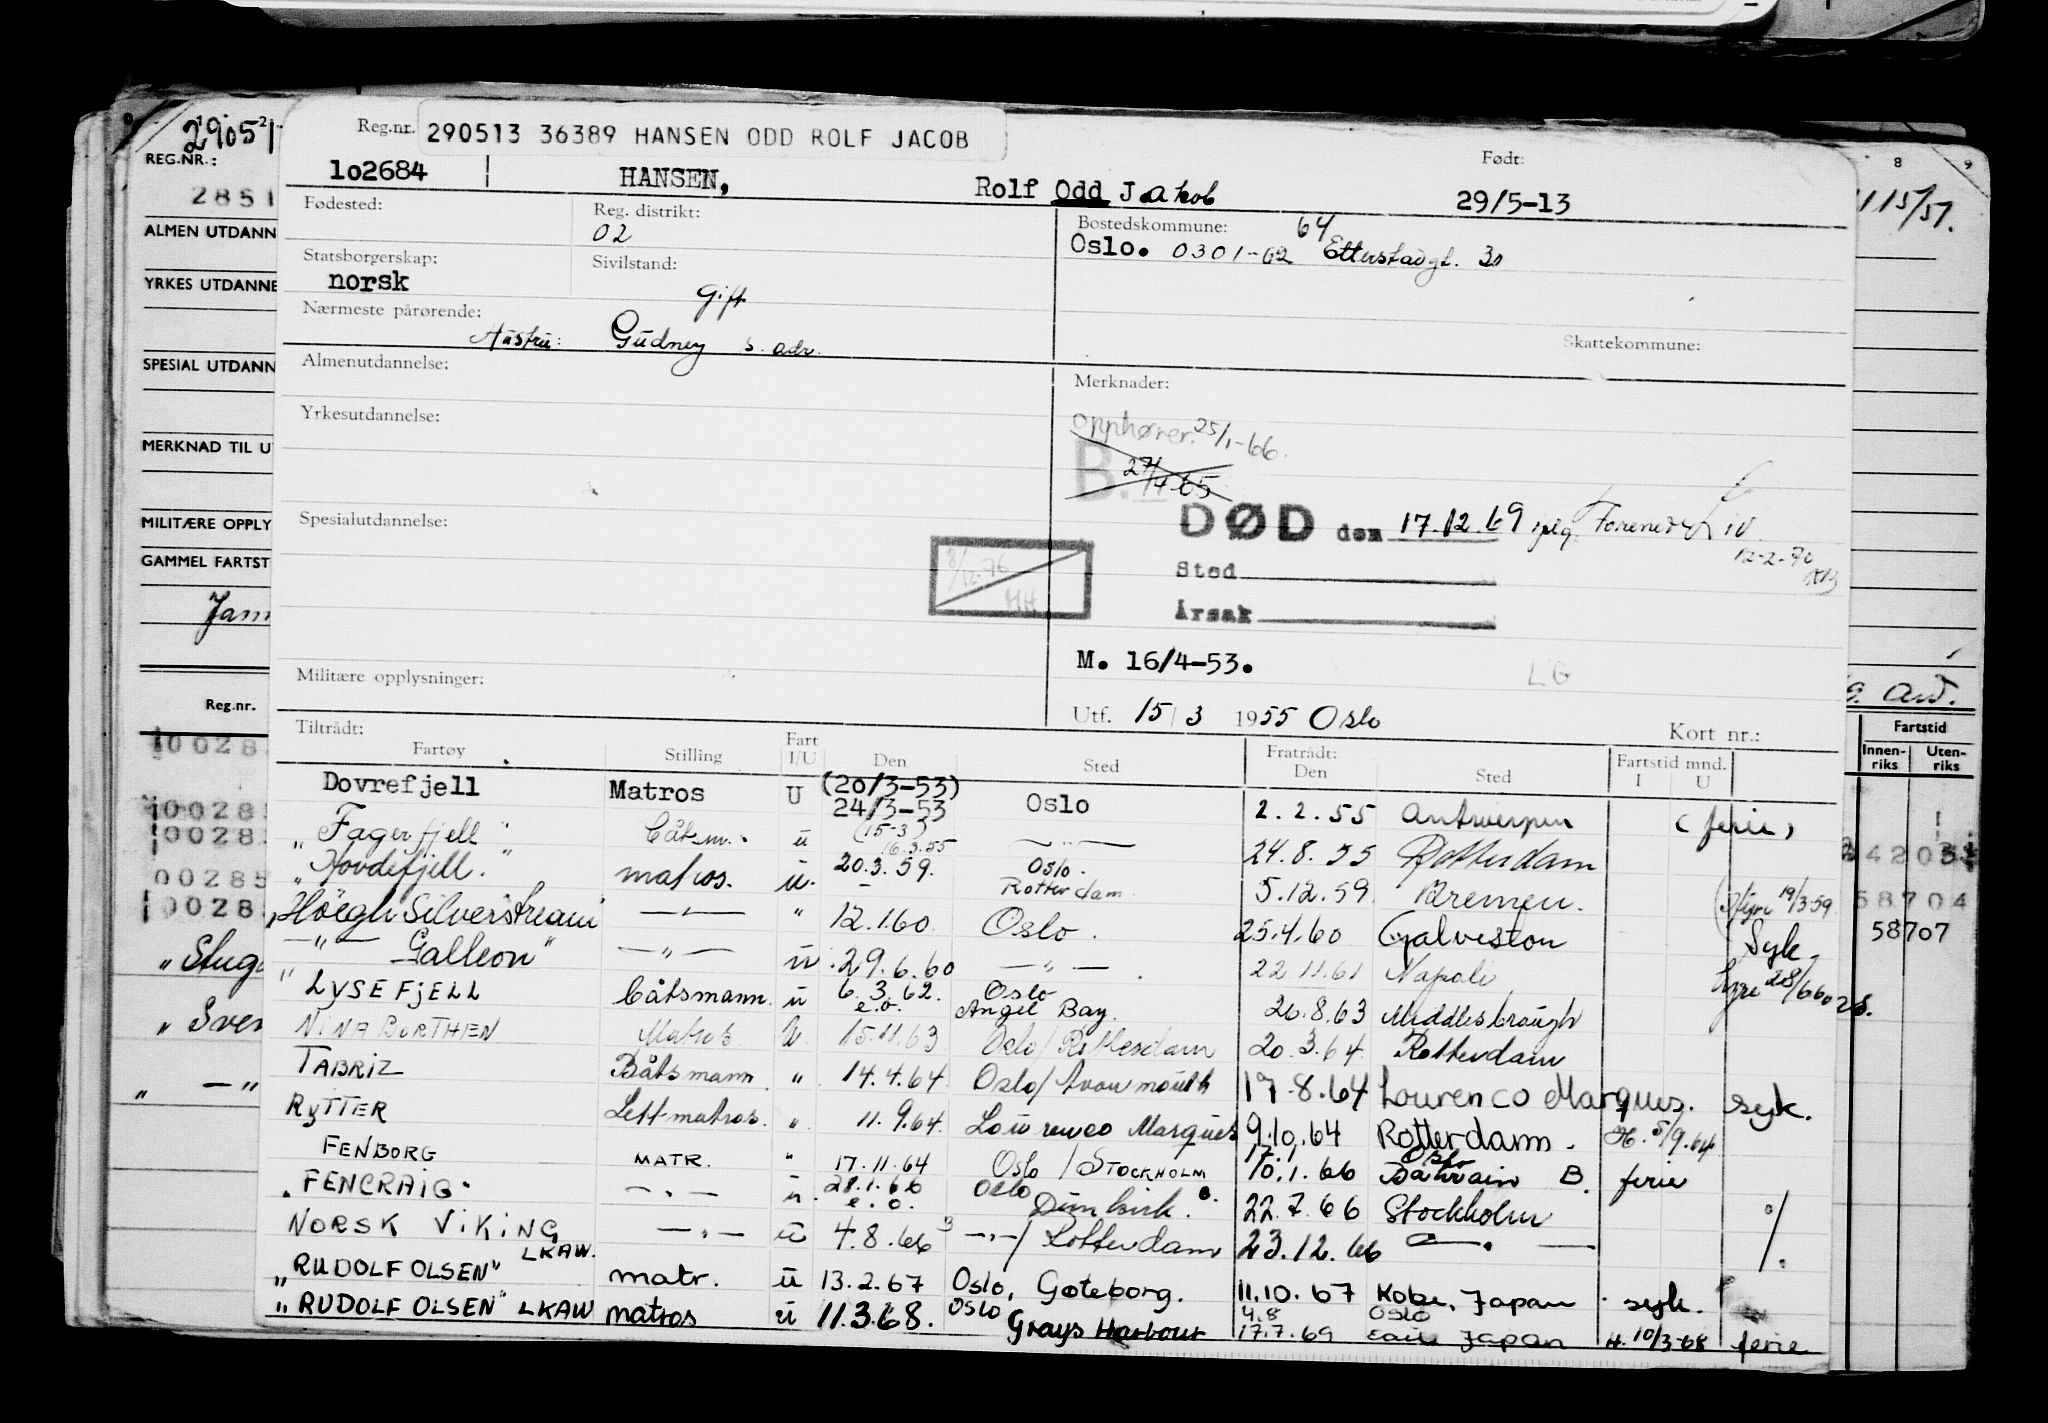 Reg.nr. 290513 36389 HANSEN ODD ROLF JACOB
Født:
1o2684 HANSEN, Rolf Odd Jakob 29/5-13
Fødested:
Reg. distrikt:
02
Bostedskommune: 64
Oslo. 0301-62 Etterstadgt. 30
Statsborgerskap:
norsk
Sivilstand:
Gift
Nærmeste pårørende:
Hustru: Gudney s. adr.
Skattekommune:
Almenutdannelse:
Merknader:
Yrkesutdannelse:
Opphører. 25/1-66.
B. 27/4-65
DØD den 17.12.69
12-2-70
Spesialutdannelse:
8/12-76
HH
Sted
Årsak
M. 16/4-53.
LG
Militære opplysninger:
Utf. 15/3 1955 Oslo
Kort nr.:
Tiltrådt:
Fartøy Stilling Fart I/U Den Sted Fratrådt: Den Sted Fartstid mnd. I U
Dovrefjell Matros U (20/3-53) 24/3-53 Oslo 2.2.55 Antwerpen (ferie)
"Fagerfjell" Båtsm. u (15-3) 16.3.55 — " — 24.8.55 Rotterdam
"Hovdefjell. matros. u. 20.3.59. Oslo. Rotterdam. 5.12.59 Bremen. 19/3-59
"Höegh Silverstream — " — " 12.1.60 Oslo. 25.4.60 Galveston Syk.
— " — Galleon" — " — u. 29.6.60 — " — 22.11.61 Napoli 28/6 60
"LYSEFJELL Båtsmann. u 6.3.62. e.o. Oslo Angel Bay. 26.8.63 Middlesbrough
NINA BORTHEN Matros U. 15.11.63 Oslo/Rotterdam 20.3.64. Rotterdam
TABRIZ Båtsmann. " 14.4.64 Oslo/Avonmouth 17.8.64 Lourenco Marques. syk.
RYTTER Lettmatros. " 11.9.64. Lourenco Marques 9.10.64 Rotterdam. H. 5/9.64
FENBORG MATR. " 17.11.64 Oslo /STOCKHOLM 17.1 10.1.66 Oslo Bahrain B. ferie
"FENCRAIG" — " — u. 28.1.66 e.o. Oslo Dünkirk. 22.7.66 Stockholm
NORSK VIKING — " — u 4.8.66 — " —/ Rotterdam 23.12.66 — " —
LKAW.
"RUDOLF OLSEN" matr. u 13.2.67 Oslo, Gøteborg. 11.10.67 Kobe, Japan syk.
"RUDOLF OLSEN" LKAW matros u 11.3.68. Oslo Grays Harbour 4.8 17.7.69 Oslo Japan H. 10/3-68 ferie
REG.NR.:
2851
ALMEN UTDANN
YRKES UTDANNE
SPESIAL UTDANN
MERKNAD TIL U
MILITÆRE OPPLY
GAMMEL FARTST
Reg.nr.
8 9
Fartstid
Innen-riks Uten-riks
58704
58707